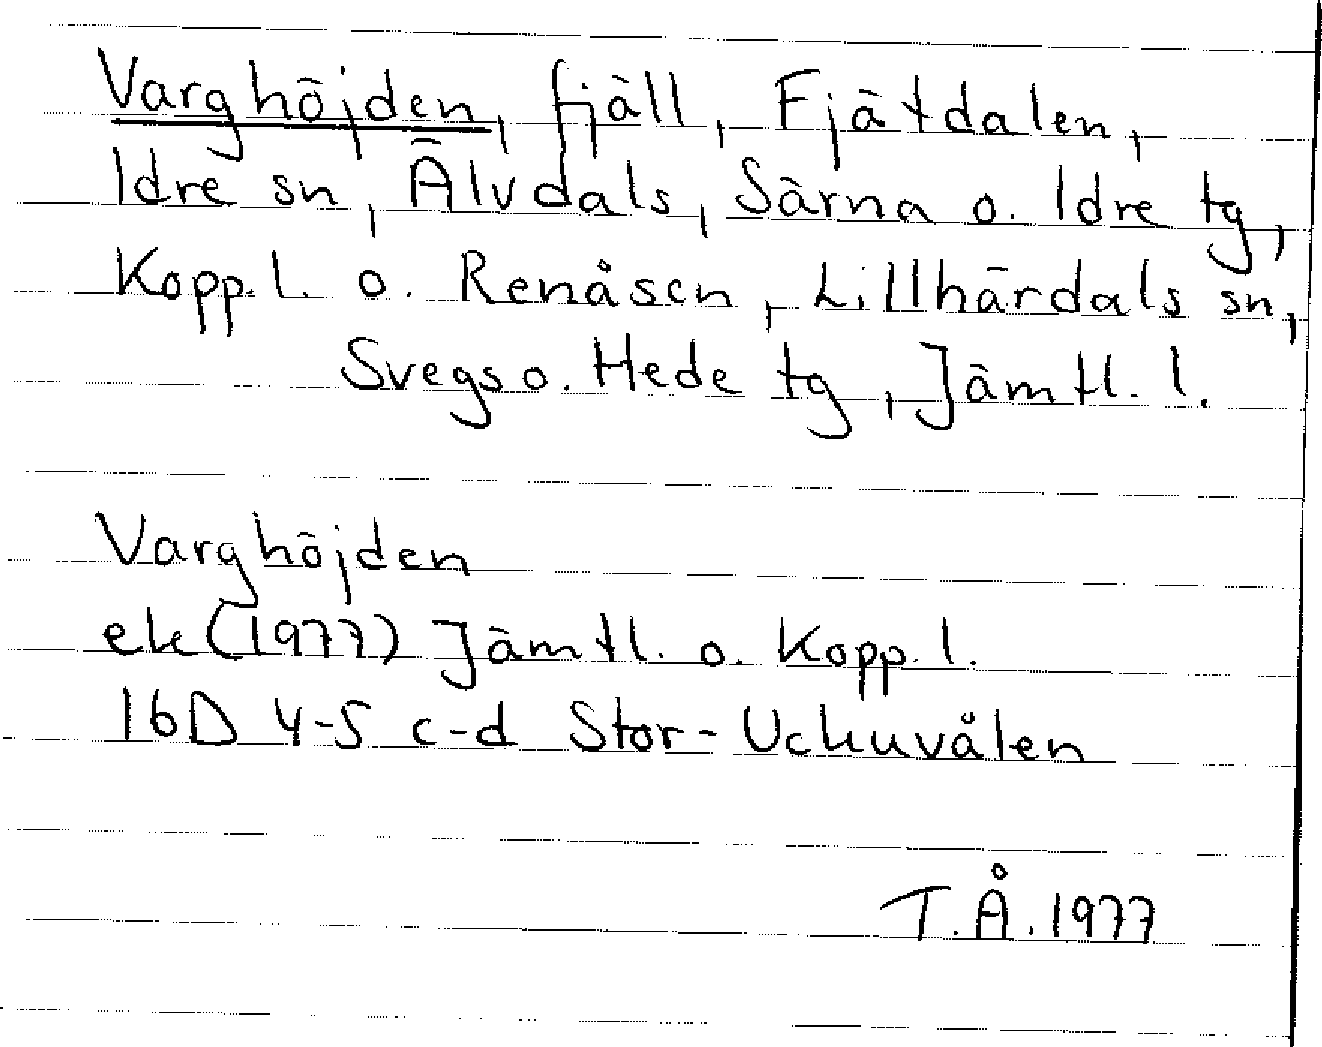 Varghöjden, fjäll, Fjätdalen,
Idre sn, Älvdals, Särna o. Idre tg,
Kopp. l. o. Renåsen, Lillhärdals sn,
Svegs o. Hede tg, Jämtl. l.
Varghöjden
ek (1977) Jämtl. o. Kopp. l.
16D 4-5 c-d Stor-Uckuvålen
T.Å. 1977